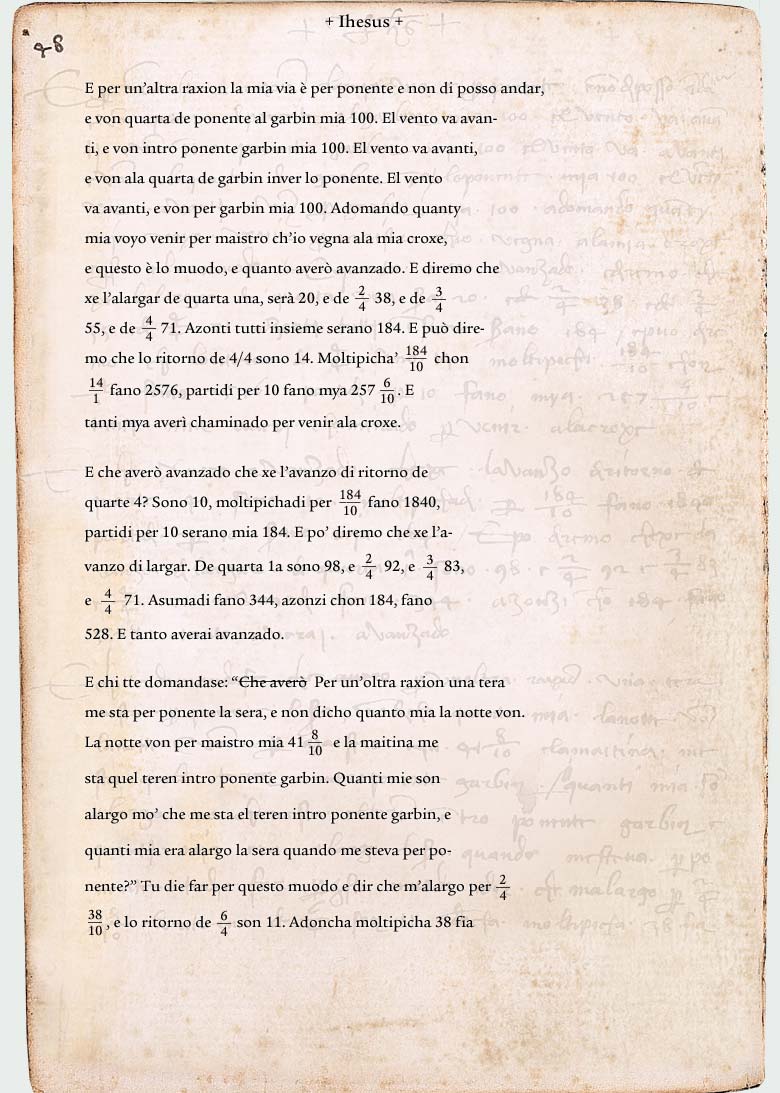 + Ihesus +
48
E per un’altra raxion la mia via è per ponente e non di posso andar,
e von quarta de ponente al garbin mia 100. El vento va avan-
ti, e von intro ponente garbin mia 100. El vento va avanti,
e von ala quarta de garbin inver lo ponente. El vento
va avanti, e von per garbin mia 100. Adomando quanty
mia voyo venir per maistro ch’io vegna ala mia croxe,
e questo è lo muodo, e quanto averò avanzado. E diremo che
xe l’alargar de quarta una, serà 20, e de 2/4 38, e de 3/4
55, e de 4/4 71. Azonti tutti insieme serano 184. E può dire-
mo che lo ritorno de 4/4 sono 14. Moltipicha’ 184/10 chon
14/1 fano 2576, partidi per 10 fano mya 257 6/10. E
tanti mya averì chaminado per venir ala croxe.
E che averò avanzado che xe l’avanzo di ritorno de
quarte 4? Sono 10, moltipichadi per 184/10 fano 1840,
partidi per 10 serano mia 184. E po’ diremo che xe l’a-
vanzo di largar. De quarta 1a sono 98, e 2/4 92, e 3/4 83,
e 4/4 71. Asumadi fano 344, azonzi chon 184, fano
528. E tanto averai avanzado.
E chi tte domandase: “Che averò Per un’oltra raxion una tera
me sta per ponente la sera, e non dicho quanto mia la notte von.
La notte von per maistro mia 41 8/10 e la maitina me
sta quel teren intro ponente garbin. Quanti mie son
alargo mo’ che me sta el teren intro ponente garbin, e
quanti mia era alargo la sera quando me steva per po-
nente?” Tu die far per questo muodo e dir che m’alargo per 2/4
38/10, e lo ritorno de 6/4 son 11. Adoncha moltipicha 38 fia